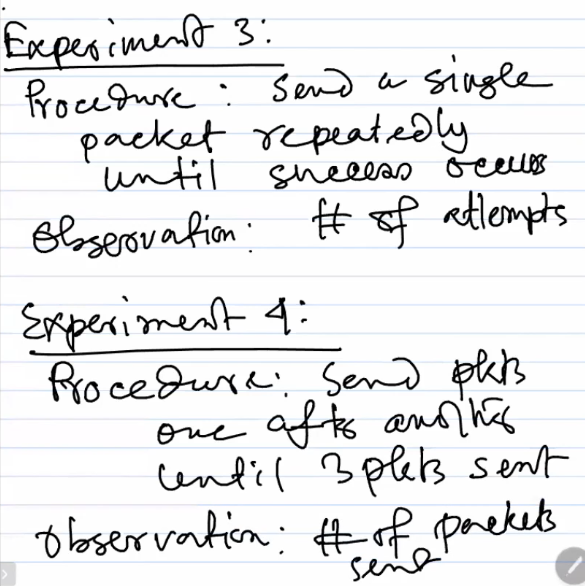 Experiment 3:
Procedure: Send a single
packet repeatedly
until success occurs
Observation: # of attempts
Experiment 4:
Procedure: Send pkts
one after another
until 3 pkts sent
Observation: # of packets
sent